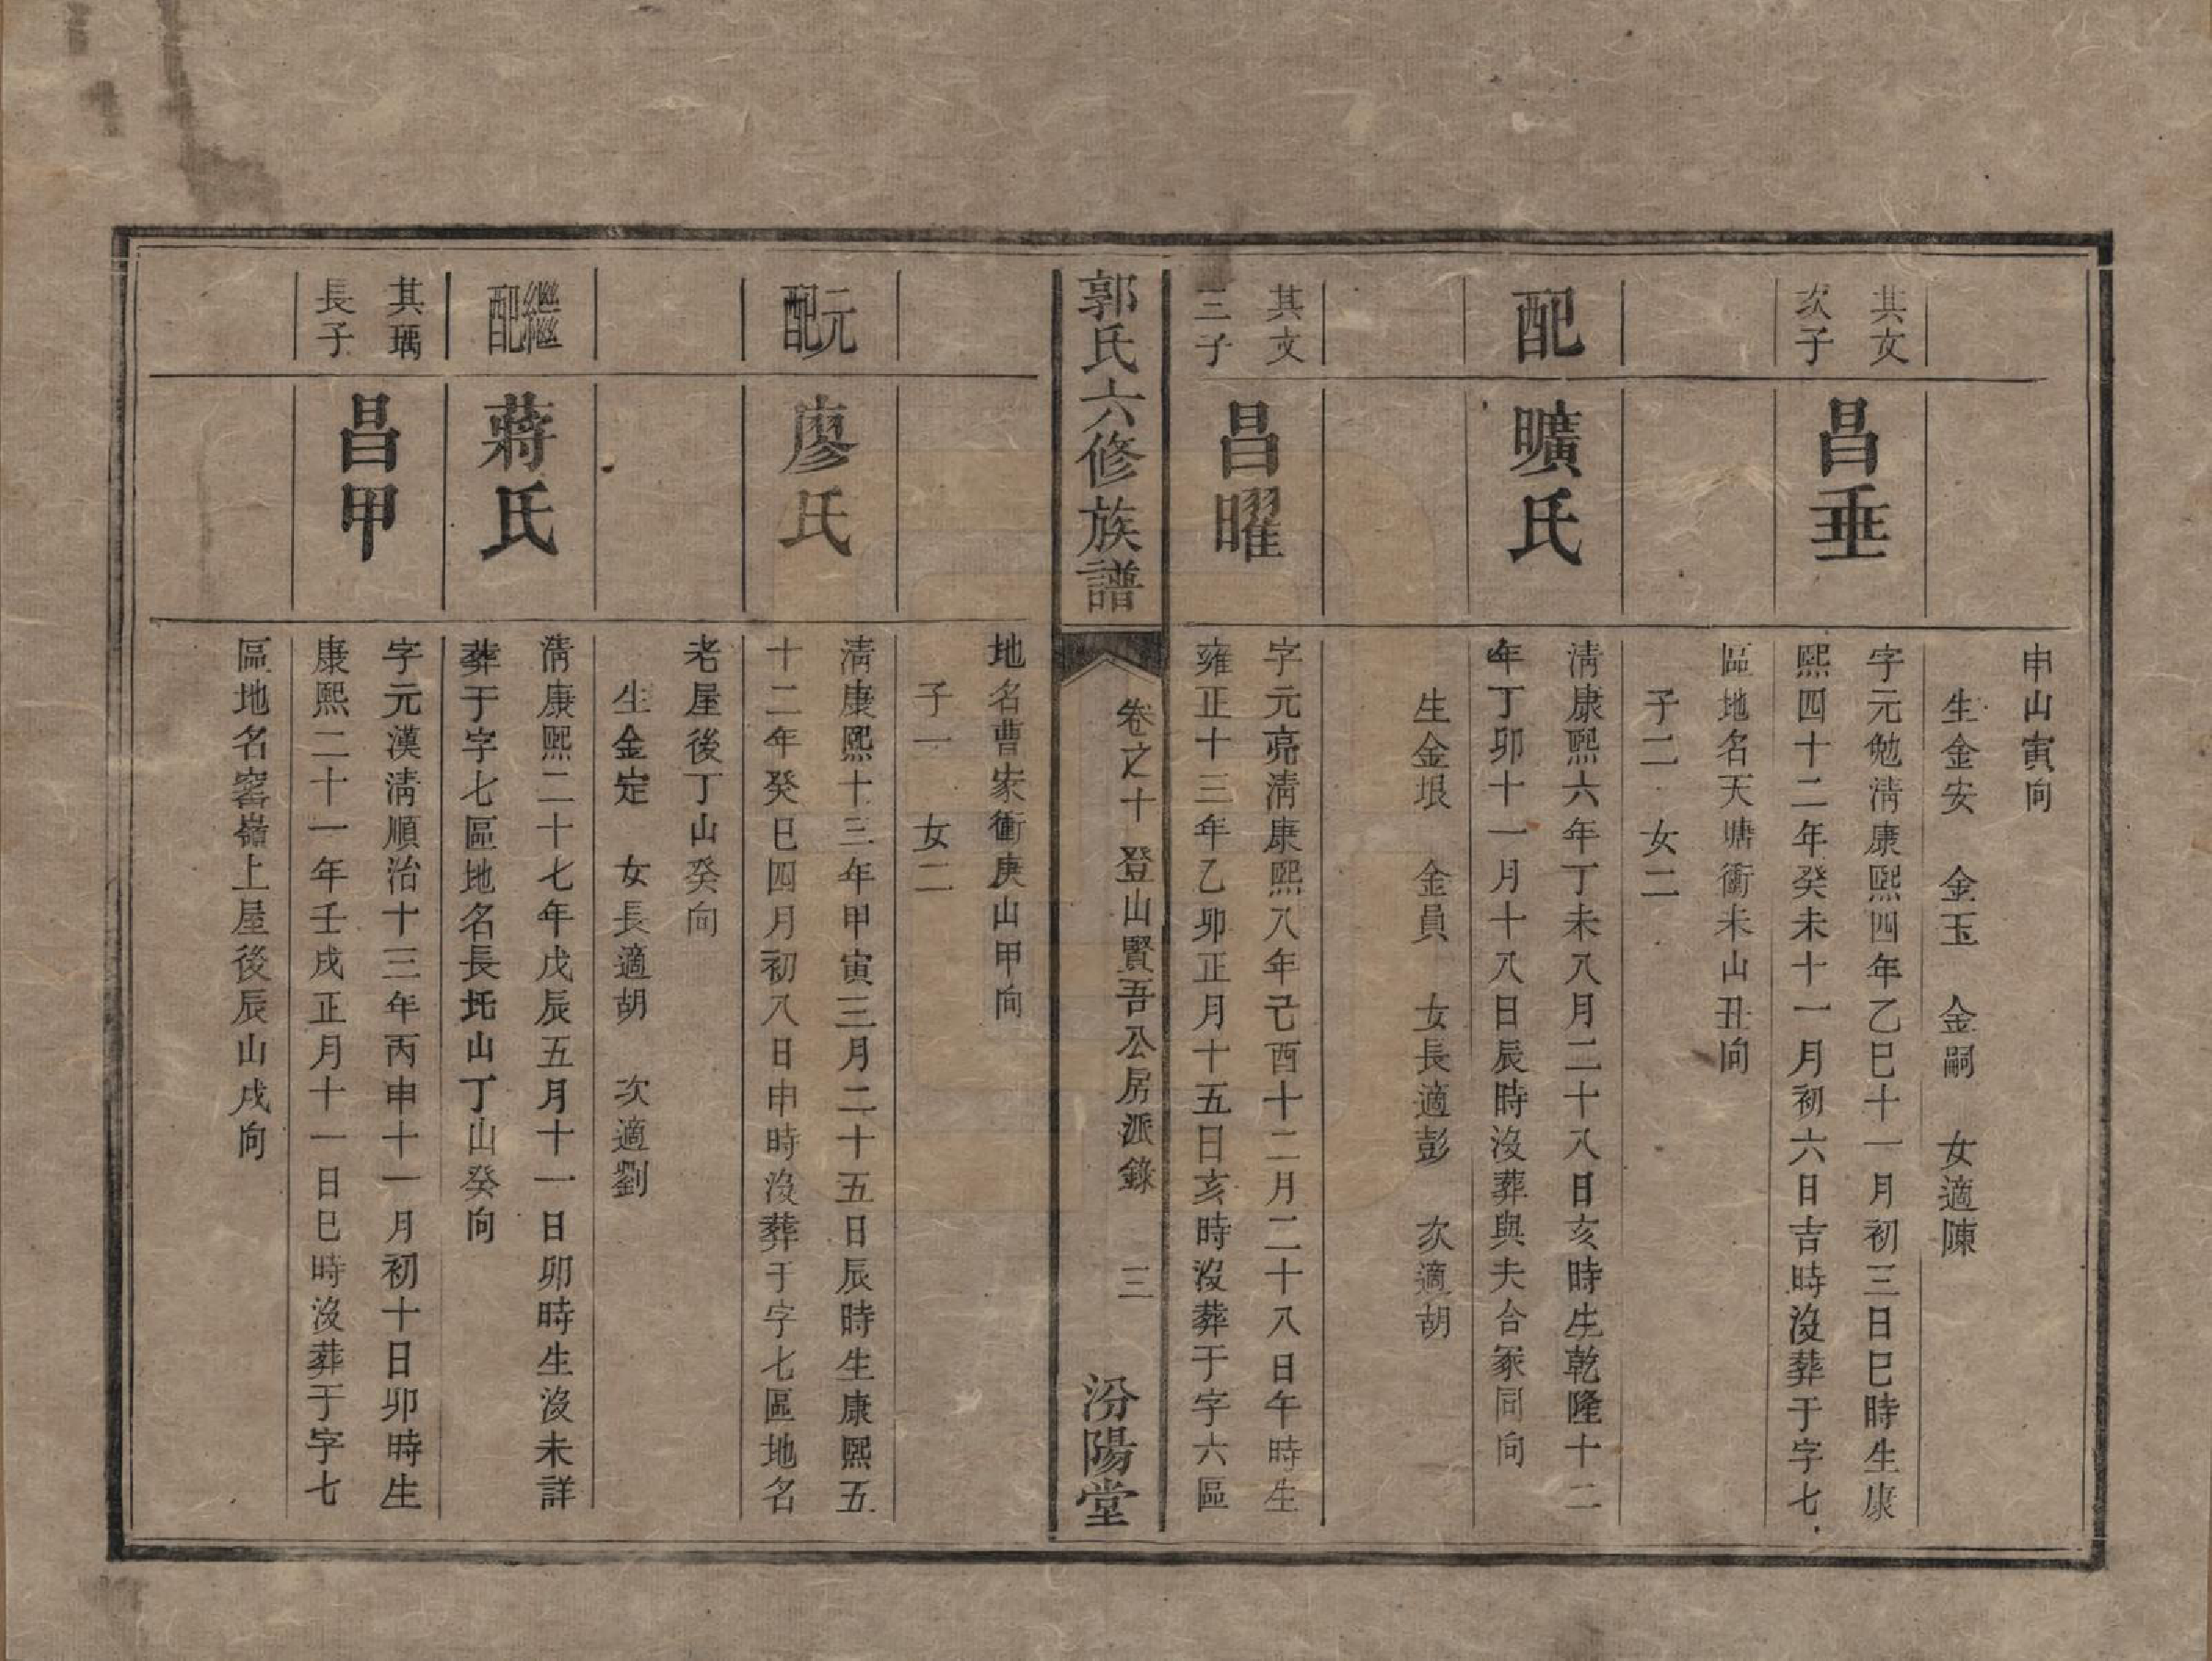 申山寅向
生金安　金玉　金嗣　女適陳
其文
次子
昌垂
字元勉淸康熙四年乙巳十一月初三日巳時生康
熙四十二年癸未十一月初六日吉時沒葬于字七
區地名天塘衝未山丑向
子二　女二
配
曠氏
淸康熙六年丁未八月二十八日亥時生乾隆十二
年丁卯十一月十八日辰時沒葬與夫合冢同向
生金垠　金員　女長適彭　次適胡
其文
三子
昌曜
字元亮淸康熙八年己酉十二月二十八日午時生
雍正十三年乙卯正月十五日亥時沒葬于字六區
郭氏六修族譜
卷之十　登山賢吾公房派錄　三
汾陽堂
地名曹家衝庚山甲向
子一　女二
元配
廖氏
淸康熙十三年甲寅三月二十五日辰時生康熙五
十二年癸巳四月初八日申時沒葬于字七區地名
老屋後丁山癸向
生金定　女長適胡　次適劉
繼配
蔣氏
淸康熙二十七年戊辰五月十一日卯時生沒未詳
葬于字七區地名長圫山丁山癸向
其瑀
長子
昌甲
字元漢淸順治十三年丙申十一月初十日卯時生
康熙二十一年壬戌正月十一日巳時沒葬于字七
區地名窰嶺上屋後辰山戌向